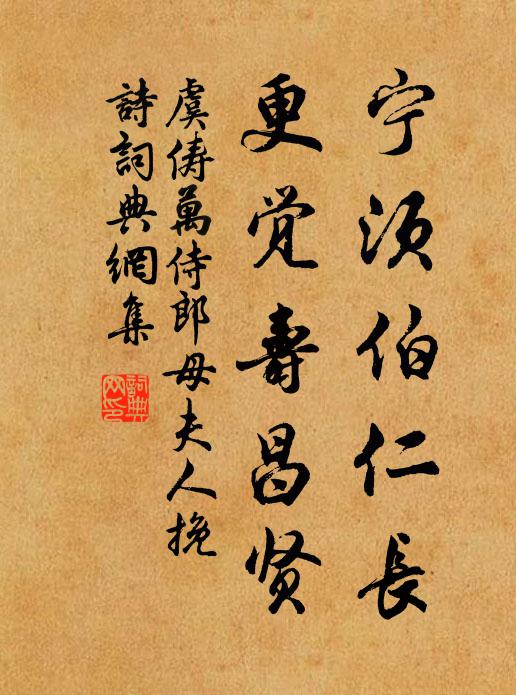 宁须伯仁長
更觉壽昌贤
虞儔萬侍郎母夫人挽
詩詞典網集
詞典網印